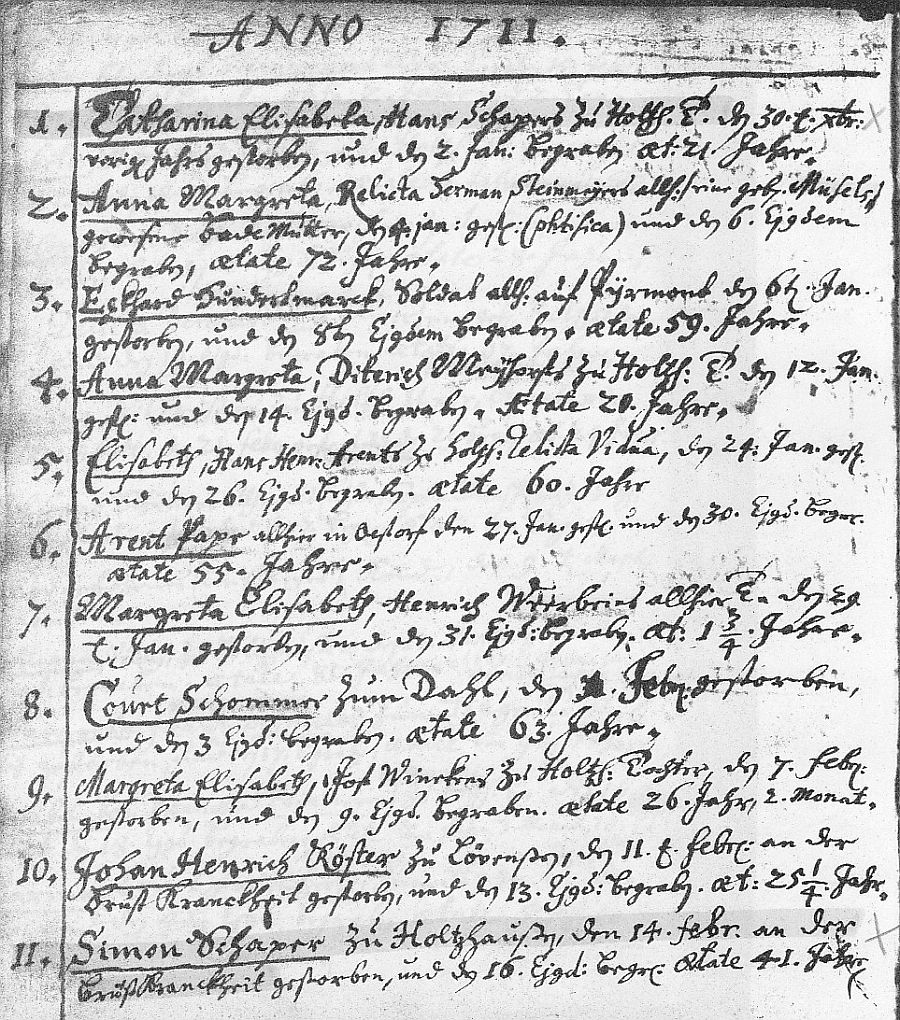 ANNO 1711.
1. Catharina Elisabeta, Hans Schapers zu Holtzh. T. den 30. t. xbr:
vorig Jahrs gestorben, und den 2. Jan: begraben æt: 21 Jahre.
2. Anna Margreta, Relicta Herman Steinmeyers allh: eine geb.
gewesene Bade Mutter, den 4. jan: gest: (phtisica) und den 6. Ejusdem
begraben, ætate 72. Jahre.
3. Eckhard Hundertmarck, Soldat allh: auf Pyrmont den 6t. Jan.
gestorben, und den 8ten Ejusdem begraben. ætate 59. Jahre.
4. Anna Margreta, Diterich Meyhorsts zu Holtzh: T. den 12. Jan.
gest: und den 14. Ejusd. begraben. Ætate 20. Jahre.
5. Elisabeth, Hans Henr: Arents zu Holtzh: relicta Vidua, den 24: Jan. gest.
und den 26. Ejusd: begraben. ætate 60. Jahre
6. Arent Pape allhier in Oestorf den 27. Jan. gest: und den 30. Ejusd. begr.
ætate 55. Jahre.
7. Margreta Elisabeth, Henrich Weerbeins allhier T. den 29
t. Jan. gestorben, und den 31. Ejusd: begraben. Æt: 1 3/4. Jahre.
8. Court Schommer zum Dahl, den 1. Febr. gestorben,
und den 3 Ejusd: begraben. ætate 63. Jahre.
9. Margreta Elisabeth, Jost Winekens zu Holtzh: Tochter, den 7. febr:
gestorben, und den 9. Ejusd. begraben. ætate 26. Jahr, 2. Monat.
10. Johan Henrich Röster zu Lövensen, den 11. t. febr: an der
brust Kranckheit gestorben, und den 13. Ejusd: begraben. æt: 25 1/4. Jahr.
11. Simon Schaper zu Holtzhausen, den 14. febr. an der
brust Kranckheit gestorben, und den 16. Ejusd: begr: Ætate 41. Jahre